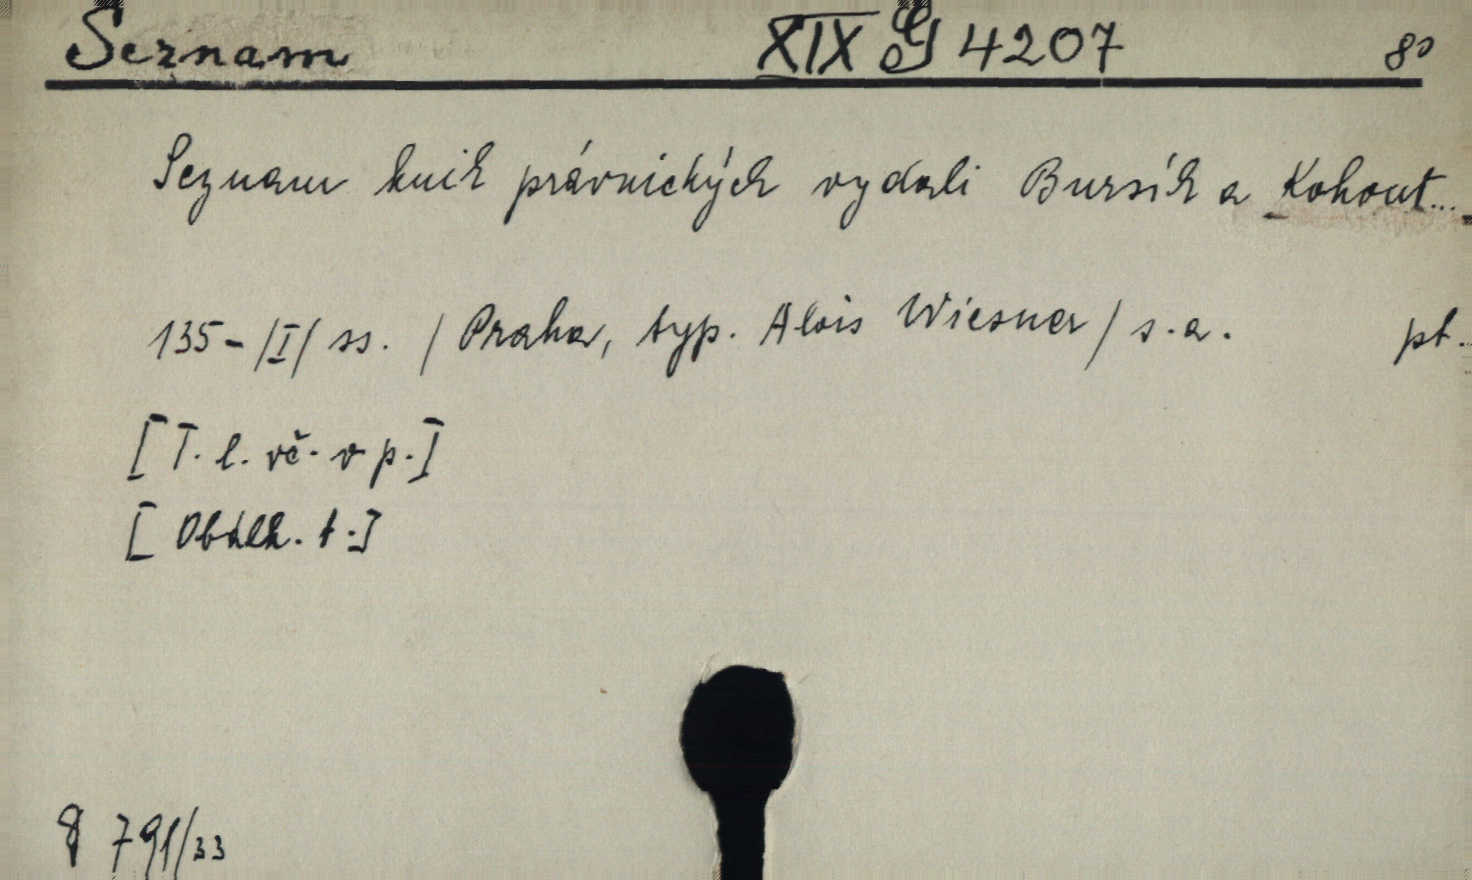 Seznam XIX G 4207 8°
Seznam knih právnických vydali Bursík a Kohout...
135-/I/ ss. / Praha, typ. Alois Wiesner / s.a. pt.
[T. l. vč. v p.]
[Obálk. t.]
791/33